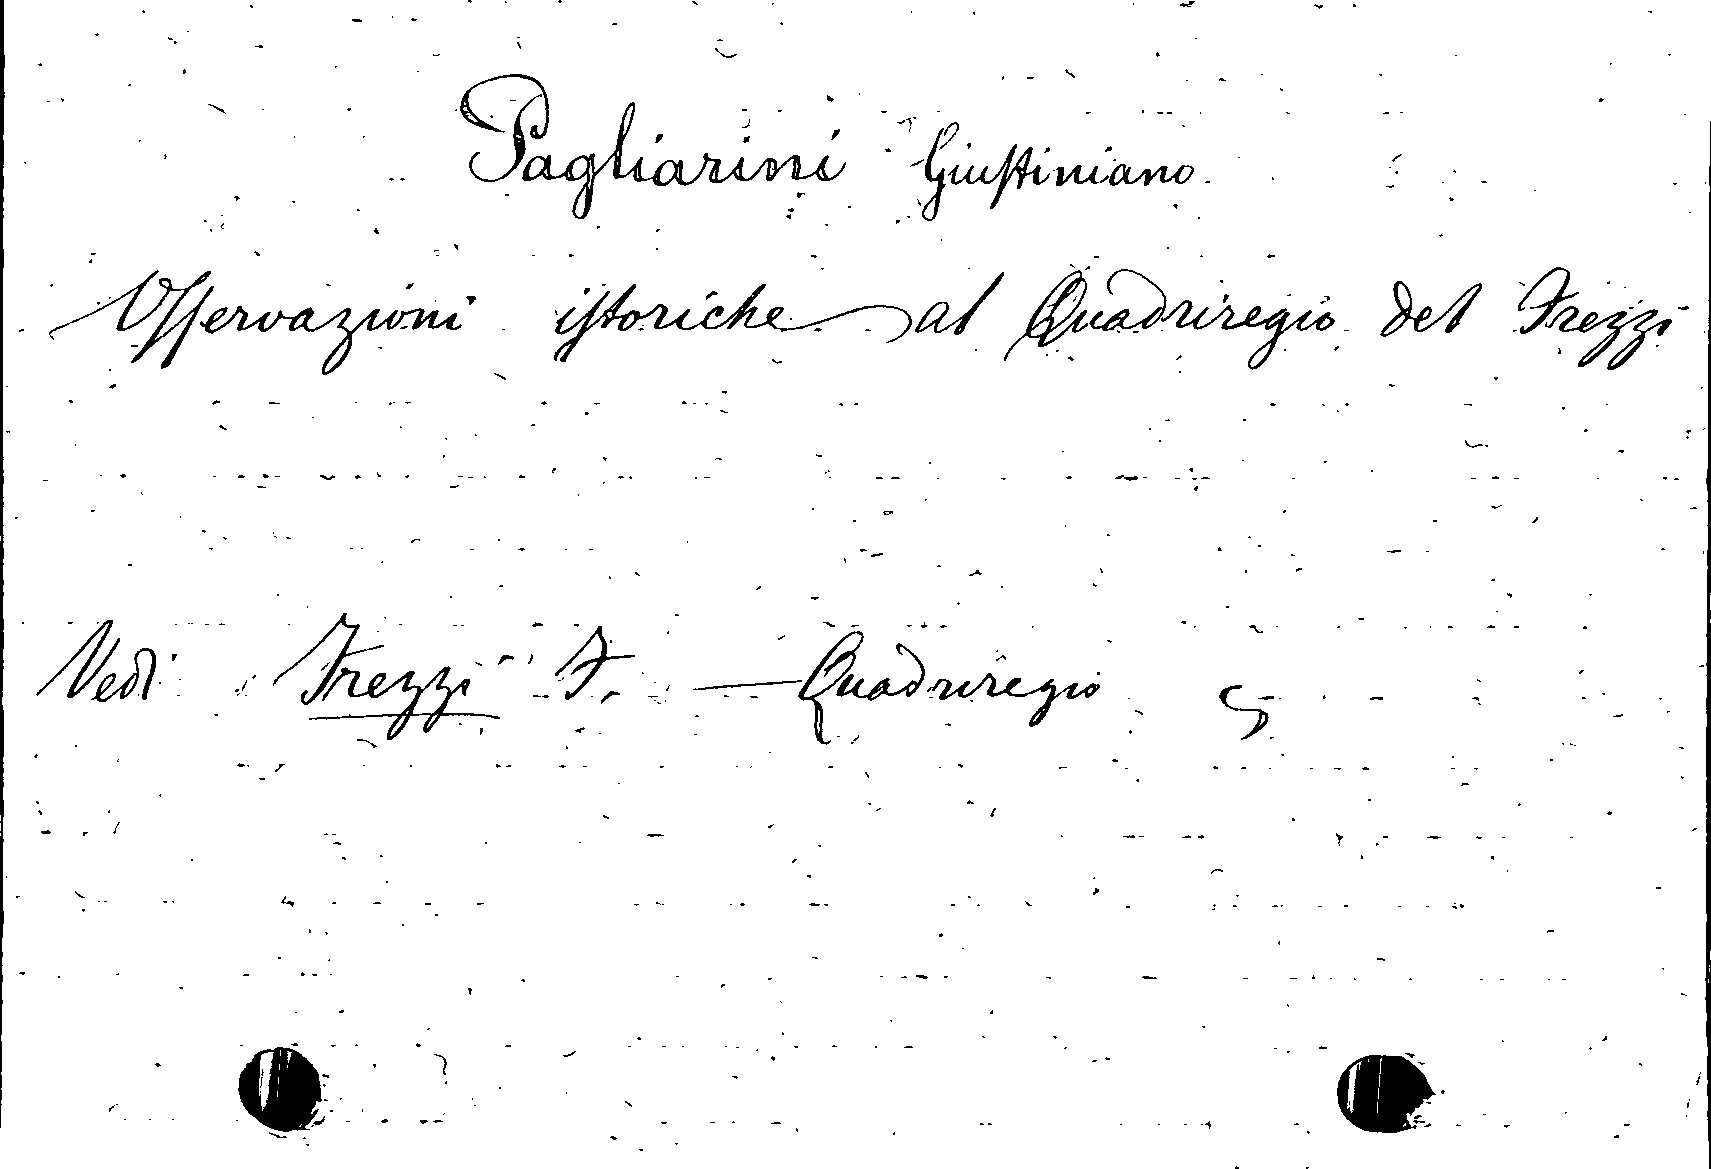 Pagliarini Giustiniano
Osservazioni istoriche al Quadriregio del Frezzi
Vedi Frezzi F. — Quadriregio